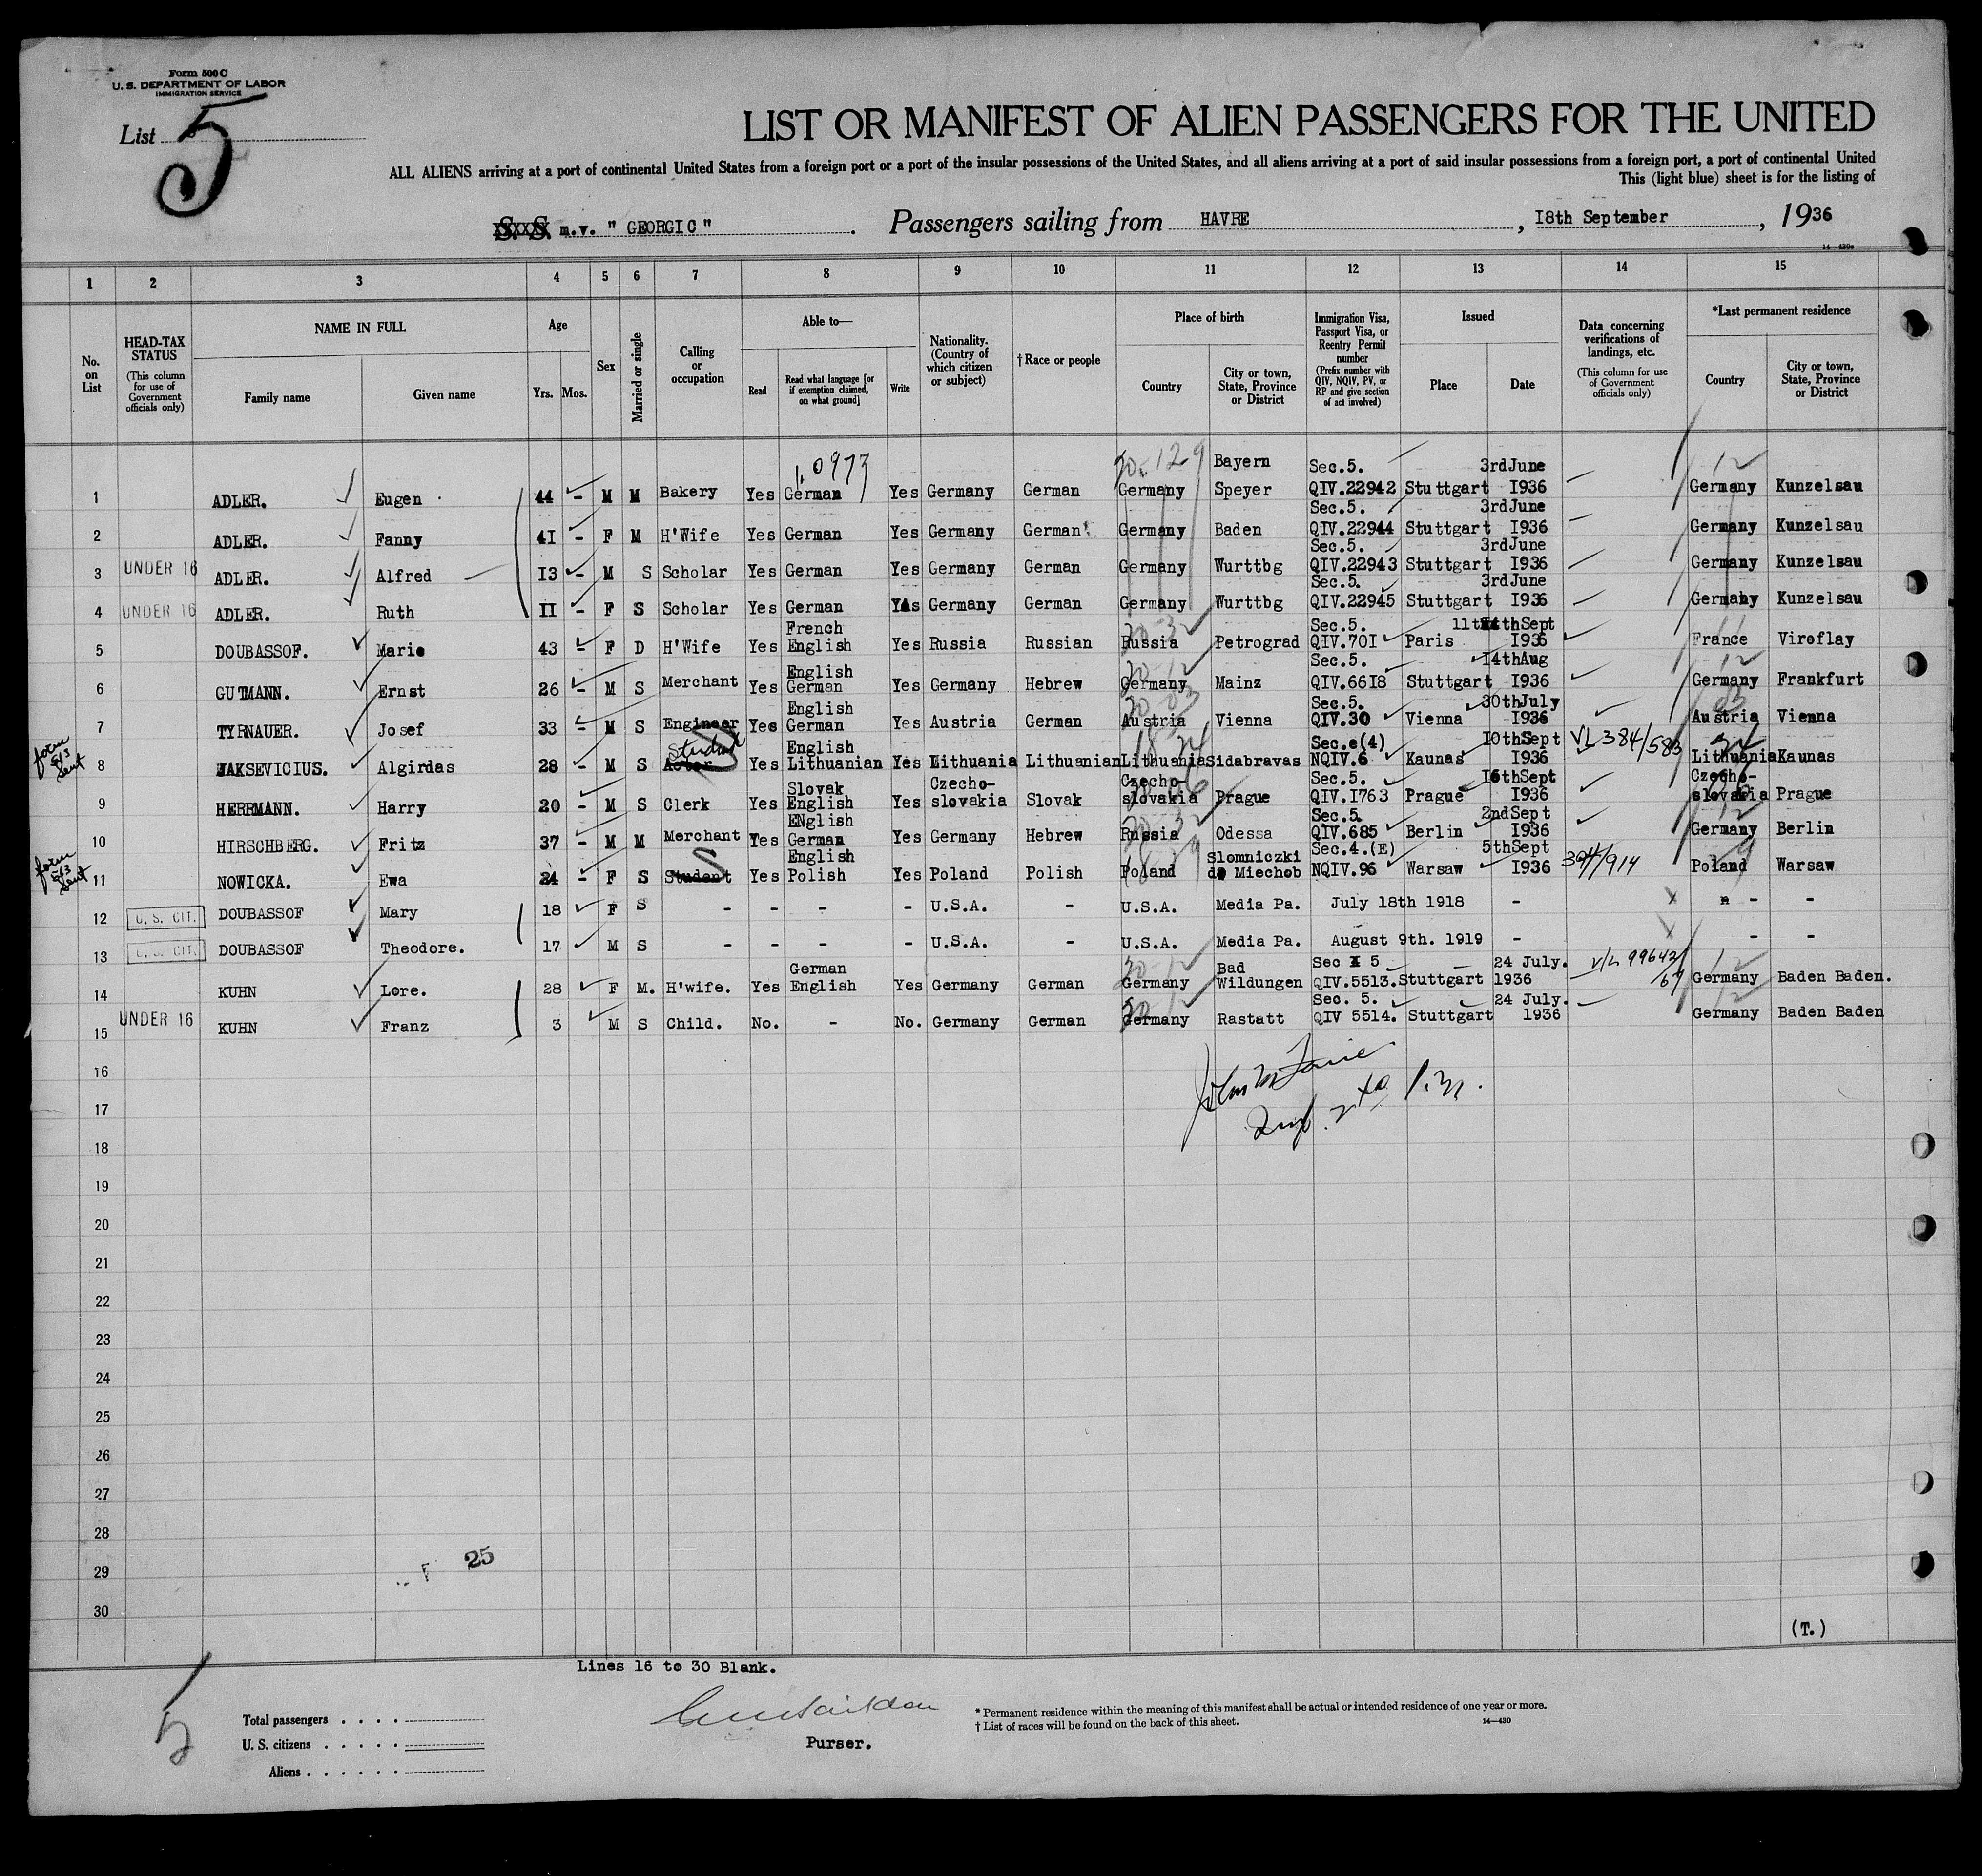 Form 500 C
U. S. DEPARTMENT OF LABOR
IMMIGRATION SERVICE
List 5
LIST OR MANIFEST OF ALIEN PASSENGERS FOR THE UNITED
ALL ALIENS arriving at a port of continental United States from a foreign port or a port of the insular possessions of the United States, and all aliens arriving at a port of said insular possessions from a foreign port, a port of continental United
This (light blue) sheet is for the listing of
S. S. m.v. " GEORGIC " . Passengers sailing from HAVRE , 18th September , 1936
14—430c
1 2 3 4 5 6 7 8 9 10 11 12 13 14 15
No. on List
HEAD-TAX STATUS (This column for use of Government officials only)
NAME IN FULL
Family name Given name
Age Yrs. Mos.
Sex
Married or single
Calling or occupation
Able to—
Read Read what language [or if exemption claimed, on what ground] Write
Nationality. (Country of which citizen or subject)
†Race or people
Place of birth
Country City or town, State, Province or District
Immigration Visa, Passport Visa, or Reentry Permit number (Prefix number with QIV, NQIV, PV, or RP and give section of act involved)
Issued
Place Date
Data concerning verifications of landings, etc. (This column for use of Government officials only)
*Last permanent residence
Country City or town, State, Province or District
1 ADLER. Eugen 44 - M M Bakery Yes German Yes Germany German Germany Bayern Speyer Sec.5. QIV.22942 Stuttgart 3rdJune I936 Germany Kunzelsau
2 ADLER. Fanny 4I - F M H'Wife Yes German Yes Germany German Germany Baden Sec.5. QIV.22944 Stuttgart 3rdJune I936 Germany Kunzelsau
3 UNDER 16 ADLER. Alfred I3 - M S Scholar Yes German Yes Germany German Germany Wurttbg Sec.5. QIV.22943 Stuttgart 3rdJune I936 Germany Kunzelsau
4 UNDER 16 ADLER. Ruth II - F S Scholar Yes German Yes Germany German Germany Wurttbg Sec.5. QIV.22945 Stuttgart 3rdJune I936 Germany Kunzelsau
5 DOUBASSOF. Marie 43 - F D H'Wife Yes French English Yes Russia Russian Russia Petrograd Sec.5. QIV.70I Paris 11thSept I936 France Viroflay
6 GUTMANN. Ernst 26 - M S Merchant Yes English German Yes Germany Hebrew Germany Mainz Sec.5. QIV.66I8 Stuttgart I4thAug I936 Germany Frankfurt
7 TYRNAUER. Josef 33 - M S Engineer Yes English German Yes Austria German Austria Vienna Sec.5. QIV.30 Vienna 30thJuly I936 Austria Vienna
form 513 sent 8 JAKSEVICIUS. Algirdas 28 - M S Actor Student Yes English Lithuanian Yes Lithuania Lithuanian Lithuania Sidabravas Sec.e(4) NQIV.6 Kaunas I0thSept I936 VL 384/583 Lithuania Kaunas
9 HERRMANN. Harry 20 - M S Clerk Yes Slovak English Yes Czecho-slovakia Slovak Czecho-slovakia Prague Sec.5. QIV.I763 Prague I6thSept I936 Czecho-slovakia Prague
10 HIRSCHBERG. Fritz 37 - M M Merchant Yes ENglish German Yes Germany Hebrew Russia Odessa Sec.5. QIV.685 Berlin 2ndSept I936 Germany Berlin
form 513 sent 11 NOWICKA. Ewa 24 - F S Student Yes English Polish Yes Poland Polish Poland Slomniczki d Miechob Sec.4.(E) NQIV.96 Warsaw 5thSept I936 394/914 Poland Warsaw
12 U. S. CIT. DOUBASSOF Mary 18 F S - - - - U.S.A. - U.S.A. Media Pa. July 18th 1918 - - -
13 U. S. CIT. DOUBASSOF Theodore. 17 M S - - - - U.S.A. - U.S.A. Media Pa. August 9th. 1919 - - -
14 KUHN Lore. 28 F M. H'wife. Yes German English Yes Germany German Germany Bad Wildungen Sec 5 QIV.5513. Stuttgart 24 July. 1936 V/L 99642/67 Germany Baden Baden.
15 UNDER 16 KUHN Franz 3 M S Child. No. - No. Germany German Germany Rastatt Sec. 5. QIV 5514. Stuttgart 24 July. 1936 Germany Baden Baden
16
17
18
19
20
21
22
23
24
25
26
27
28
29
30
25
(T.)
Lines 16 to 30 Blank.
Total passengers
U. S. citizens
Aliens
Purser.
* Permanent residence within the meaning of this manifest shall be actual or intended residence of one year or more.
† List of races will be found on the back of this sheet.
14—430
5